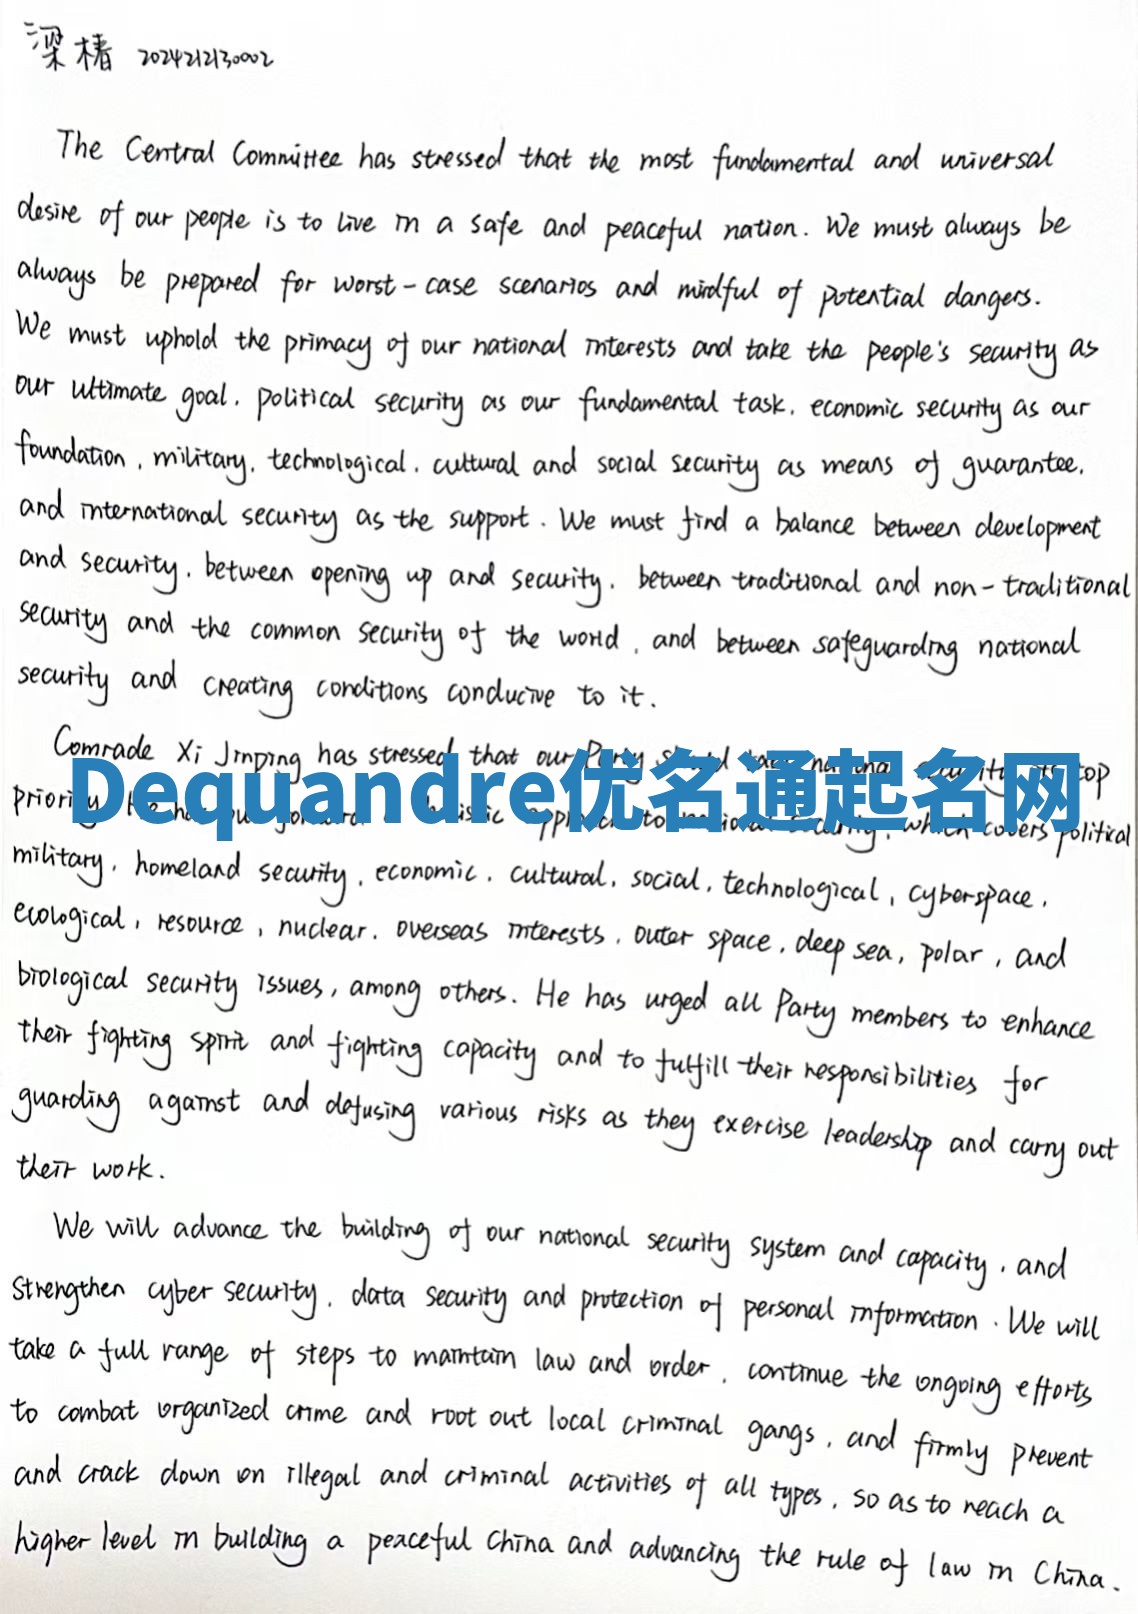 梁椿 2024212130002
The Central Committee has stressed that the most fundamental and universal
desire of our people is to live in a safe and peaceful nation. We must always be
always be prepared for worst-case scenarios and mindful of potential dangers.
We must uphold the primacy of our national interests and take the people's security as
our ultimate goal, political security as our fundamental task, economic security as our
foundation, military, technological, cultural and social security as means of guarantee,
and international security as the support. We must find a balance between development
and security, between opening up and security, between traditional and non-traditional
security and the common security of the world, and between safeguarding national
security and creating conditions conducive to it.
Comrade Xi Jinping has stressed that our Party security its top
Dequandre优名通起名网
priority. He has to national security, which covers political
military, homeland security, economic, cultural, social, technological, cyberspace,
ecological, resource, nuclear, overseas interests, outer space, deep sea, polar, and
biological security issues, among others. He has urged all Party members to enhance
their fighting spirit and fighting capacity and to fulfill their responsibilities for
guarding against and defusing various risks as they exercise leadership and carry out
their work.
We will advance the building of our national security system and capacity, and
strengthen cyber security, data security and protection of personal information. We will
take a full range of steps to maintain law and order, continue the ongoing efforts
to combat organized crime and root out local criminal gangs, and firmly prevent
and crack down on illegal and criminal activities of all types, so as to reach a
higher level in building a peaceful China and advancing the rule of law in China.